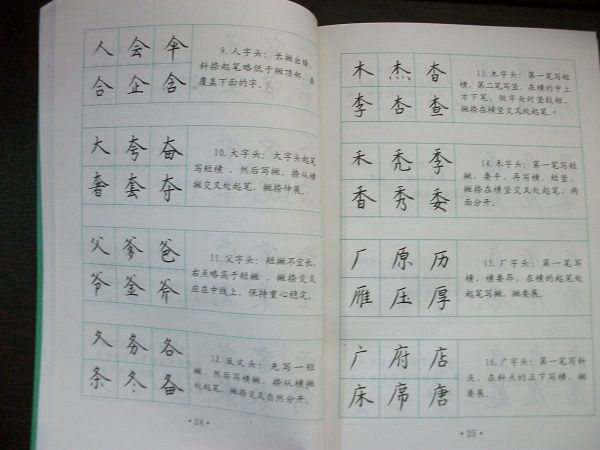 人 会 伞
合 企 含
9. 人字头：长撇出锋，
斜捺起笔略低于撇顶部，要
覆盖下面的字。
大 夸 奋
奢 套 夺
10. 大字头：大字头起笔
写短横，然后写撇，捺从横
撇交叉处起笔，撇捺伸展。
父 爹 爸
爷 釜 斧
11. 父字头：短撇不宜长，
右点略高于短撇，撇捺交叉
应在中线上，保持重心稳定。
夂 务 各
条 冬 备
12. 反文头：先写一短
撇，然后写横撇，捺从横撇
处起笔，撇捺交叉自然分开。
·24·
木 杰 杳
李 杏 查
13. 木字头：第一笔写短
横，第二笔写竖，在横的中上
方下笔，做字头时竖较短，
撇捺在横竖交叉处起笔。
禾 秃 季
香 秀 委
14. 禾字头：第一笔写短
撇，要平，再写横，短竖，
撇捺在横竖交叉处起笔，两
面分开。
厂 原 历
雁 压 厚
15. 厂字头：第一笔写
横，横要昂，在横的起笔处
起笔写撇，撇要展。
广 府 店
床 席 唐
16. 广字头：第一笔写斜
点，在斜点的正下写横，撇
要展。
·25·